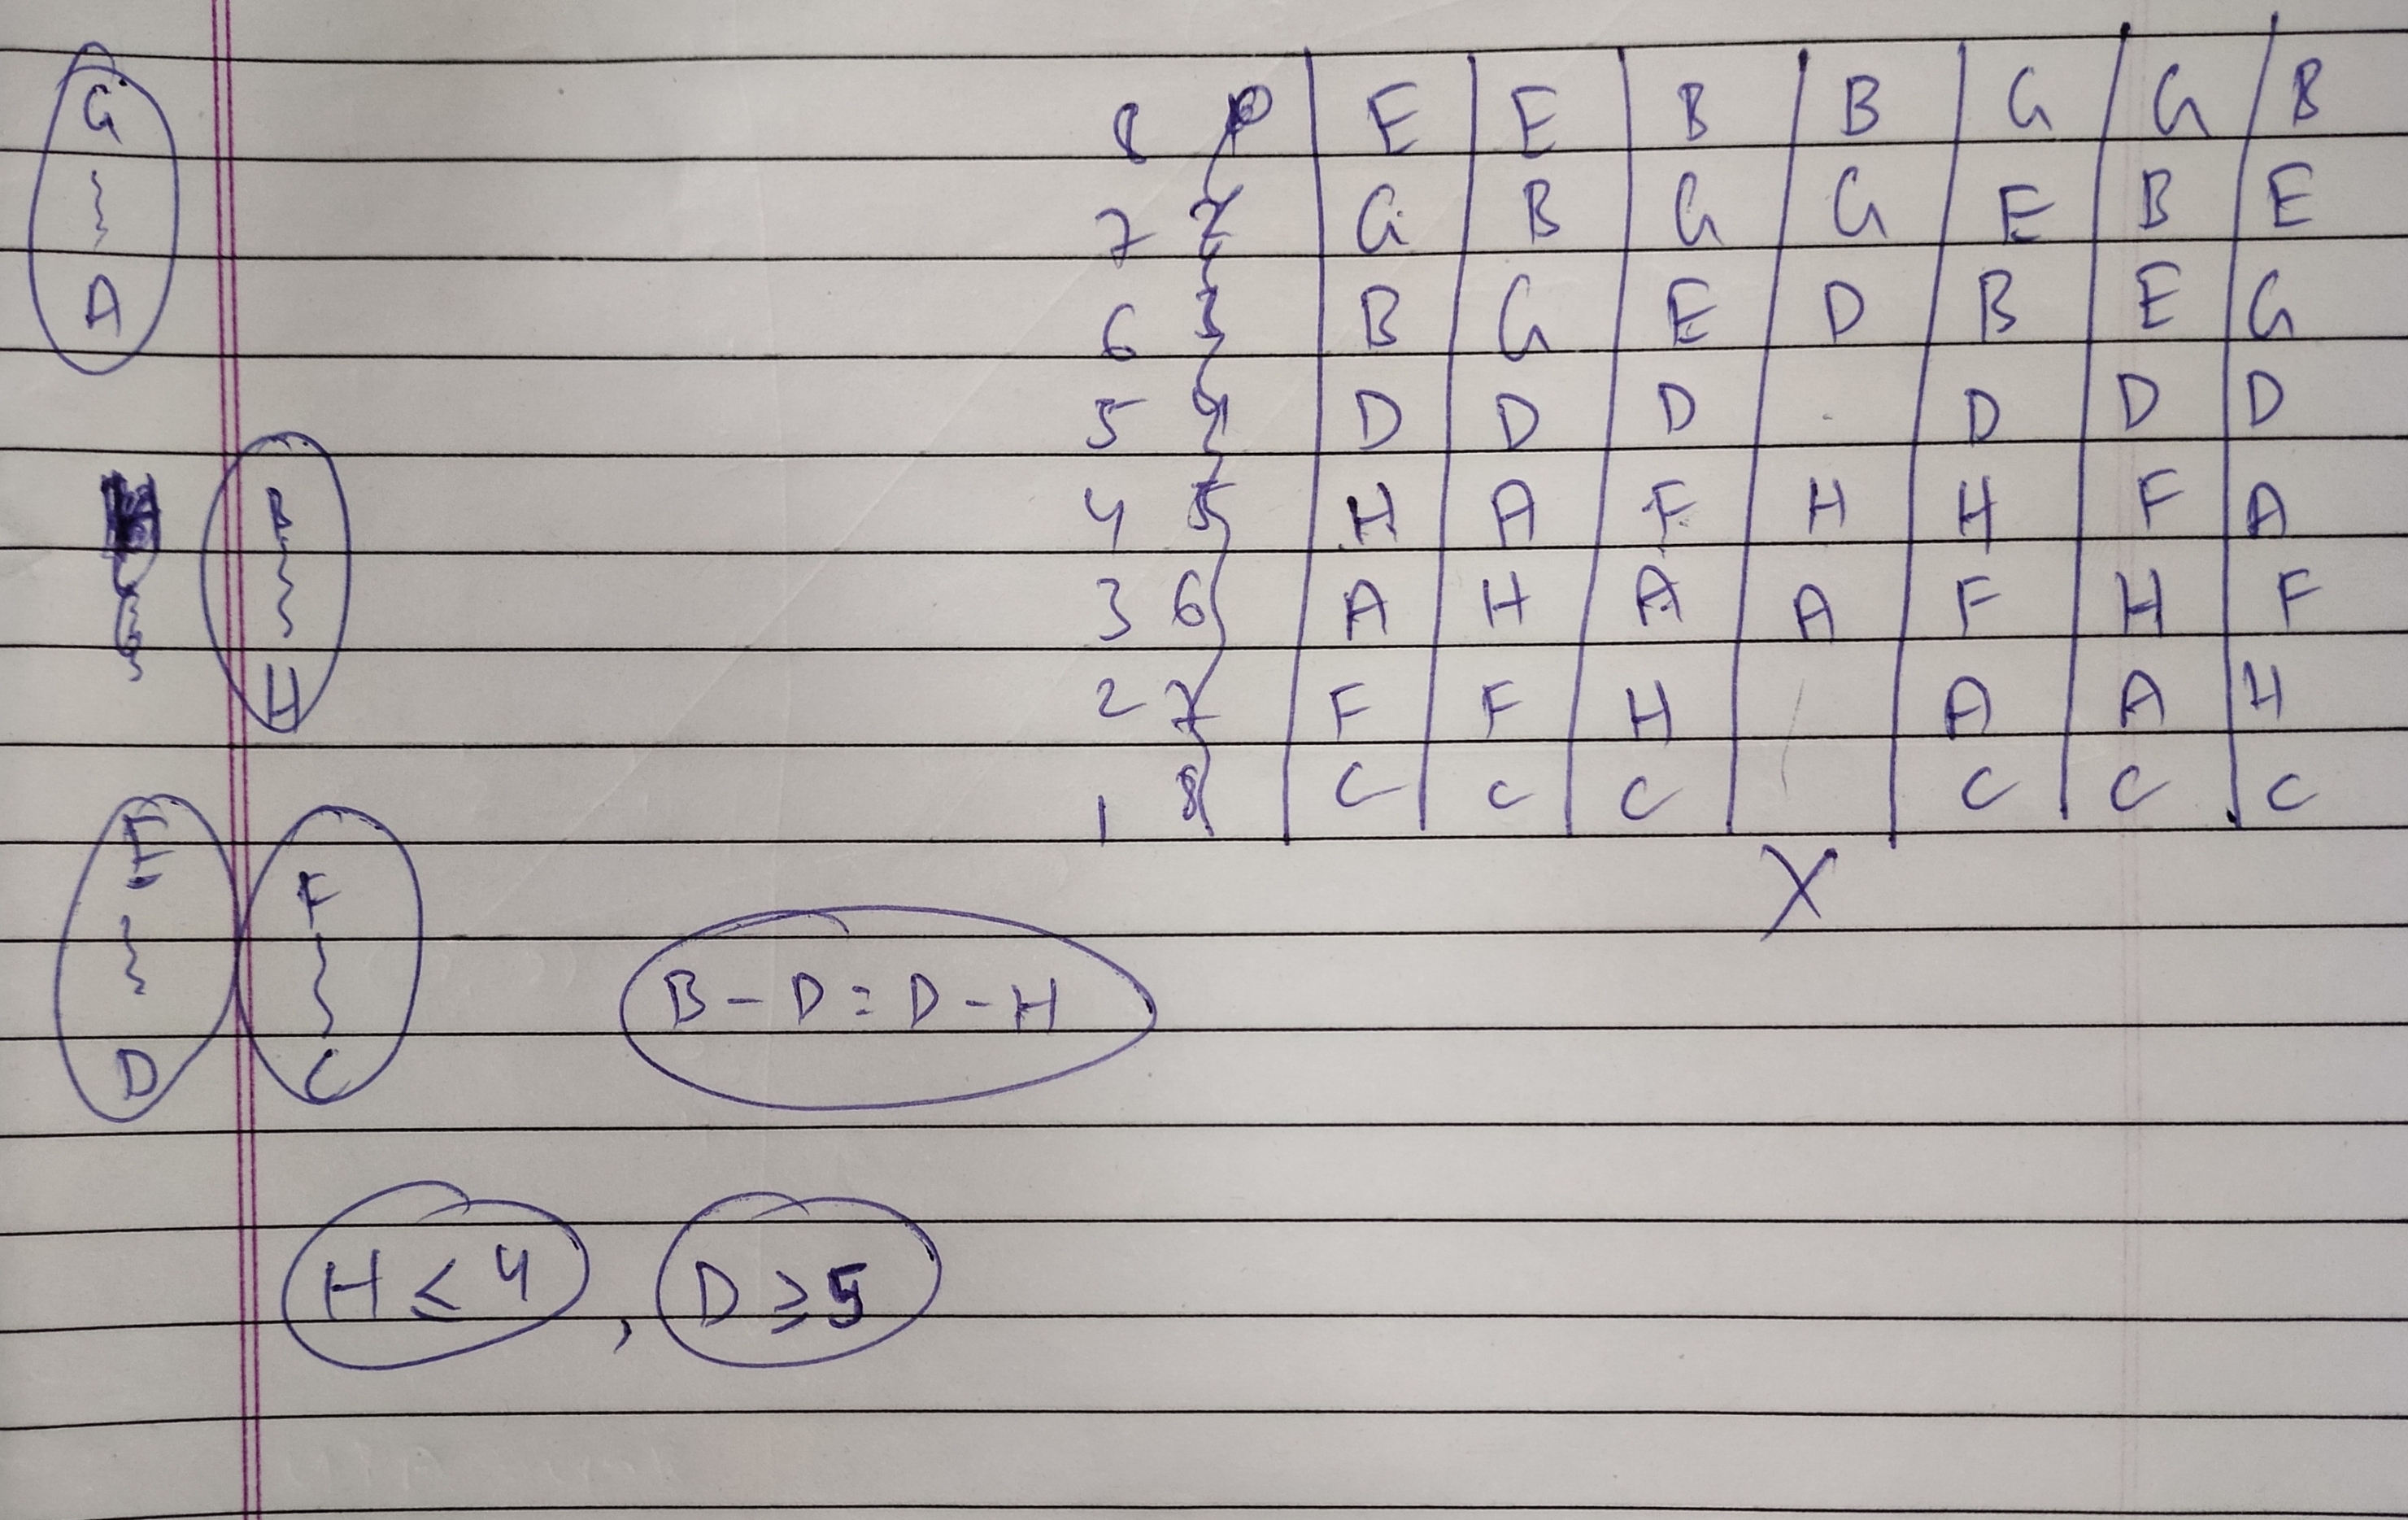 G
A
B
H
E
D
F
C
B - D = D - H
H ≤ 4 , D ≥ 5
8 E E B B G G B
7 G B G G E B E
6 3 B G E D B E G
5 4 D D D D D D
4 5 H A F H H F A
3 6 A H A A F H F
2 7 F F H A A H
1 8 C C C C C C
X